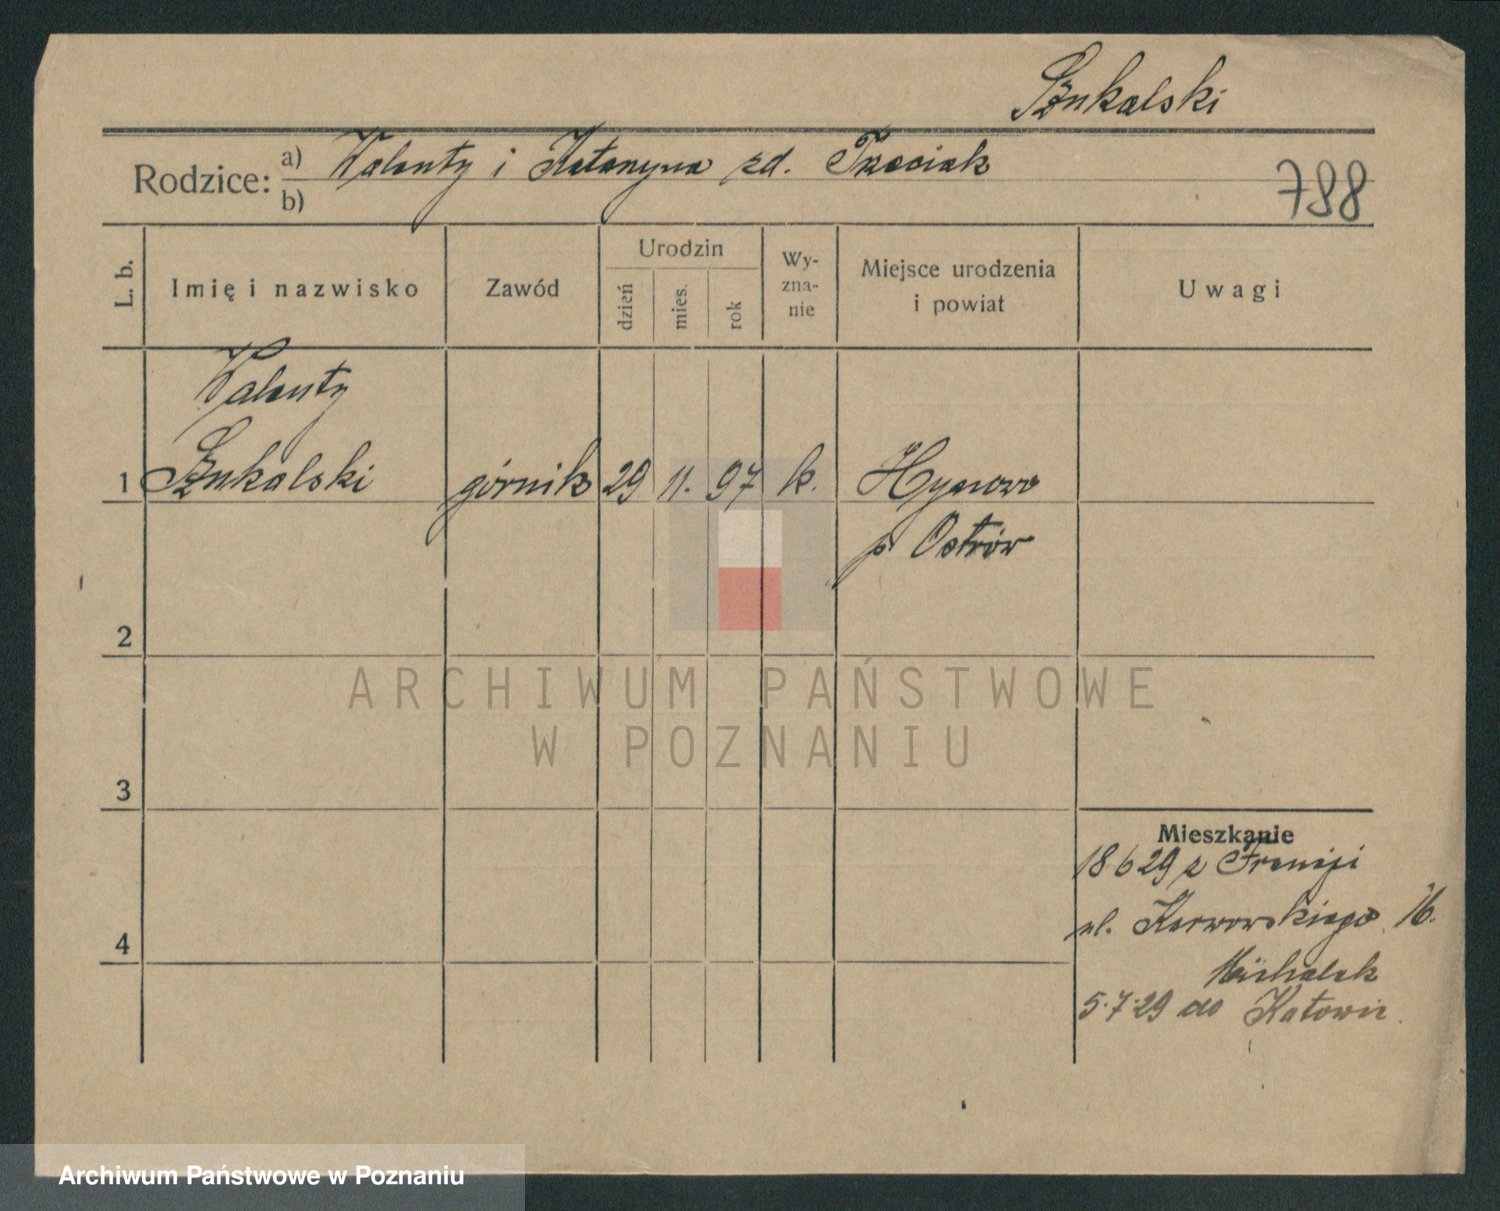 Szukalski
Rodzice: a) Walenty i Katarzyna zd. Trzeciak
b)
788
L. b.
Imię i nazwisko
Zawód
Urodzin
dzień
mies.
rok
Wy-
zna-
nie
Miejsce urodzenia
i powiat
Uwagi
Walenty
1 Szukalski górnik 29 11. 97 k.
p Ostrów
2
ARCHIWUM PAŃSTWOWE
W POZNANIU
3
Mieszkanie
18 6 29 z Francji
ul. Karwowskiego 16.
Michalak
4
5.7.29 do Katowic
Archiwum Państwowe w Poznaniu